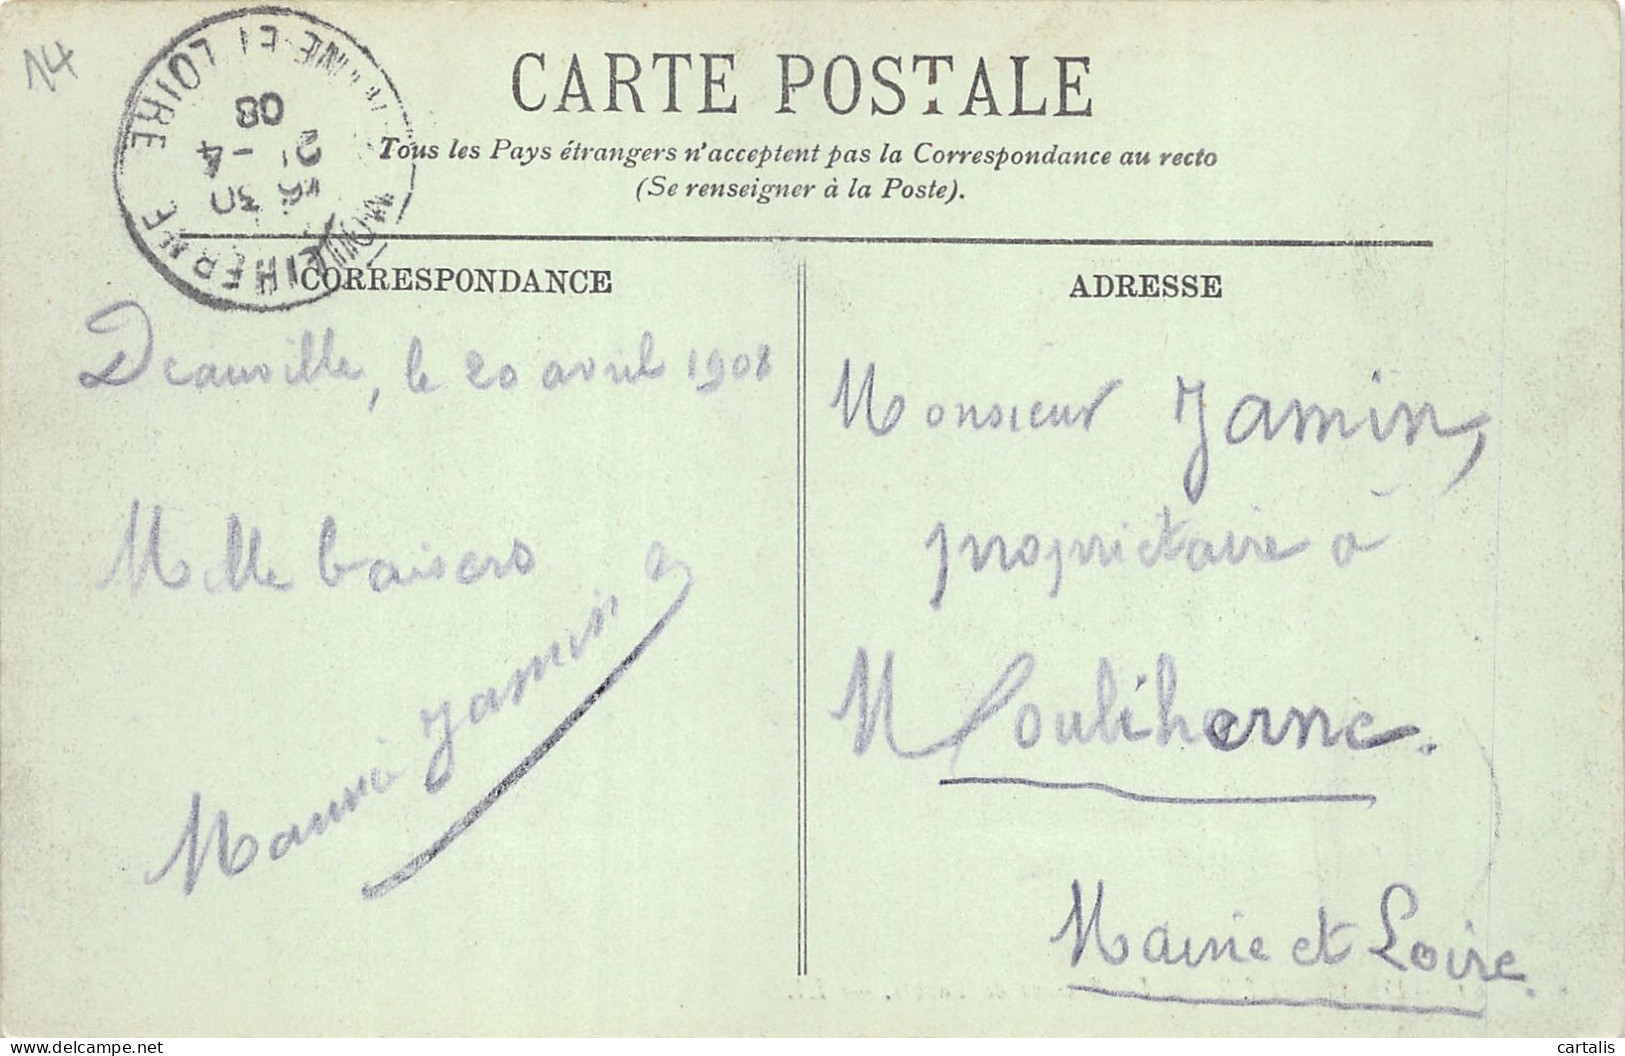 14
MOULIHERNE
MAINE ET LOIRE
16 30
21 - 4
08
CARTE POSTALE
Tous les Pays étrangers n'acceptent pas la Correspondance au recto
(Se renseigner à la Poste).
CORRESPONDANCE
Deauville, le 20 avril 1908
Mille baisers
Jamin
ADRESSE
Monsieur Jamin,
propriétaire à
Mouliherne.
Maine et Loire.
cartalis